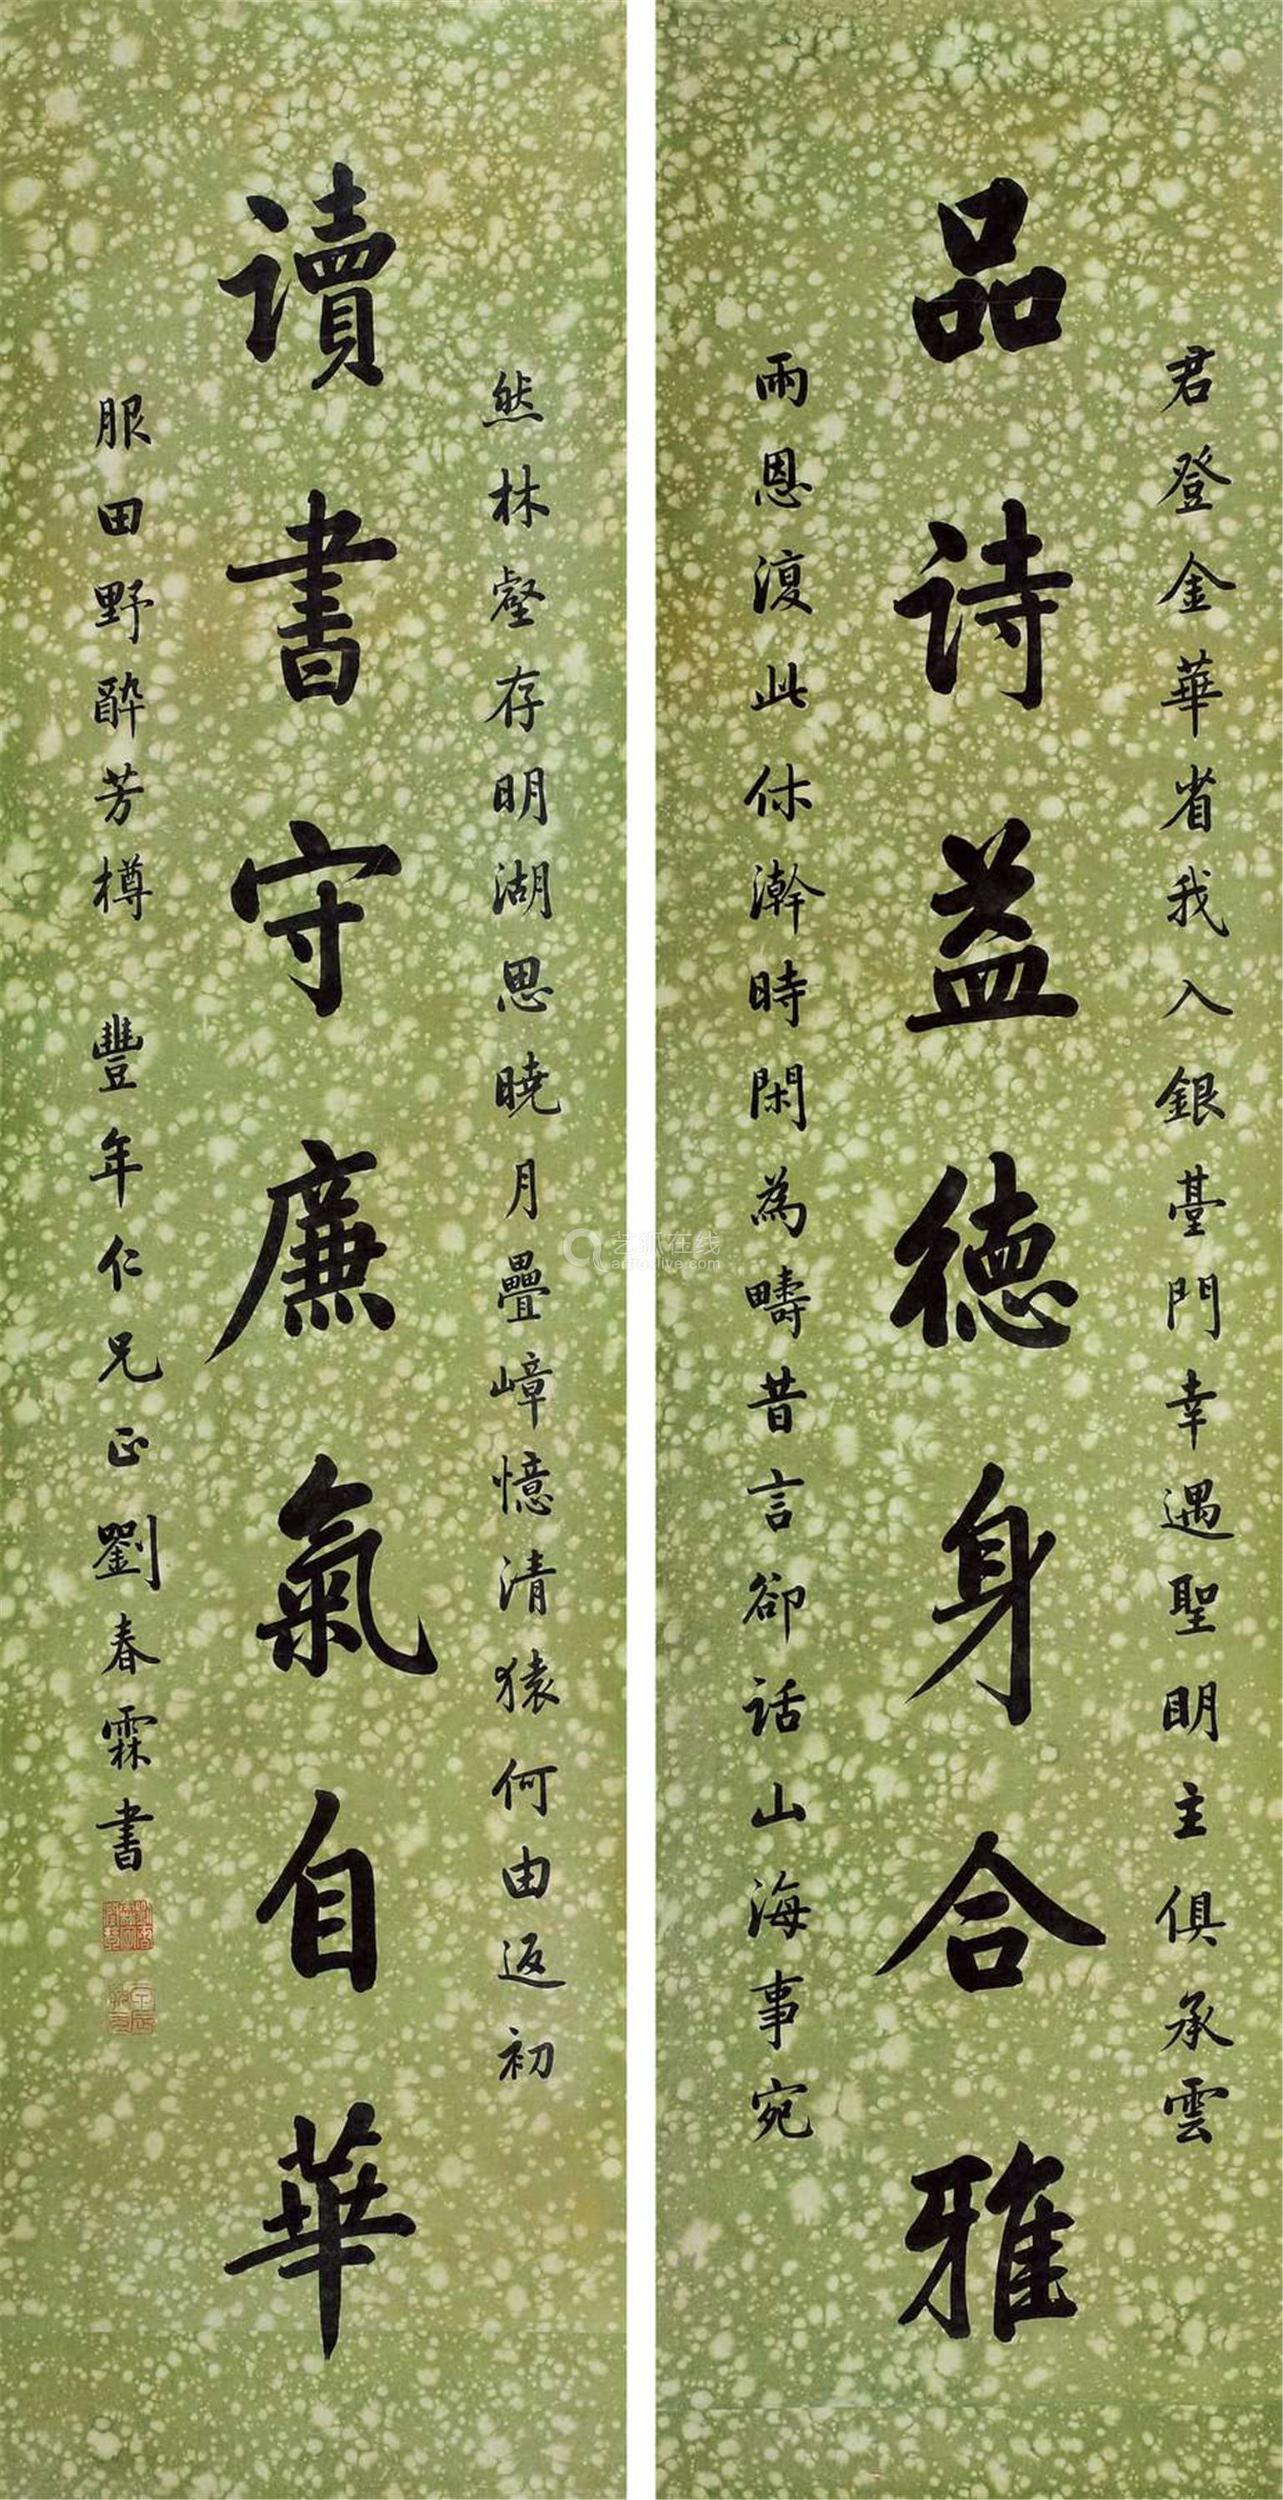 君登金華省我入銀臺門幸遇聖明主俱承雲
品诗益德身合雅
雨恩復此休澣時閑為疇昔言卻话山海事宛
然林壑存明湖思曉月疊嶂憶清猿何由返初
讀書守廉氣自華
服田野醉芳樽 豐年仁兄正劉春霖書
艺狐在线
artfoxlive.com